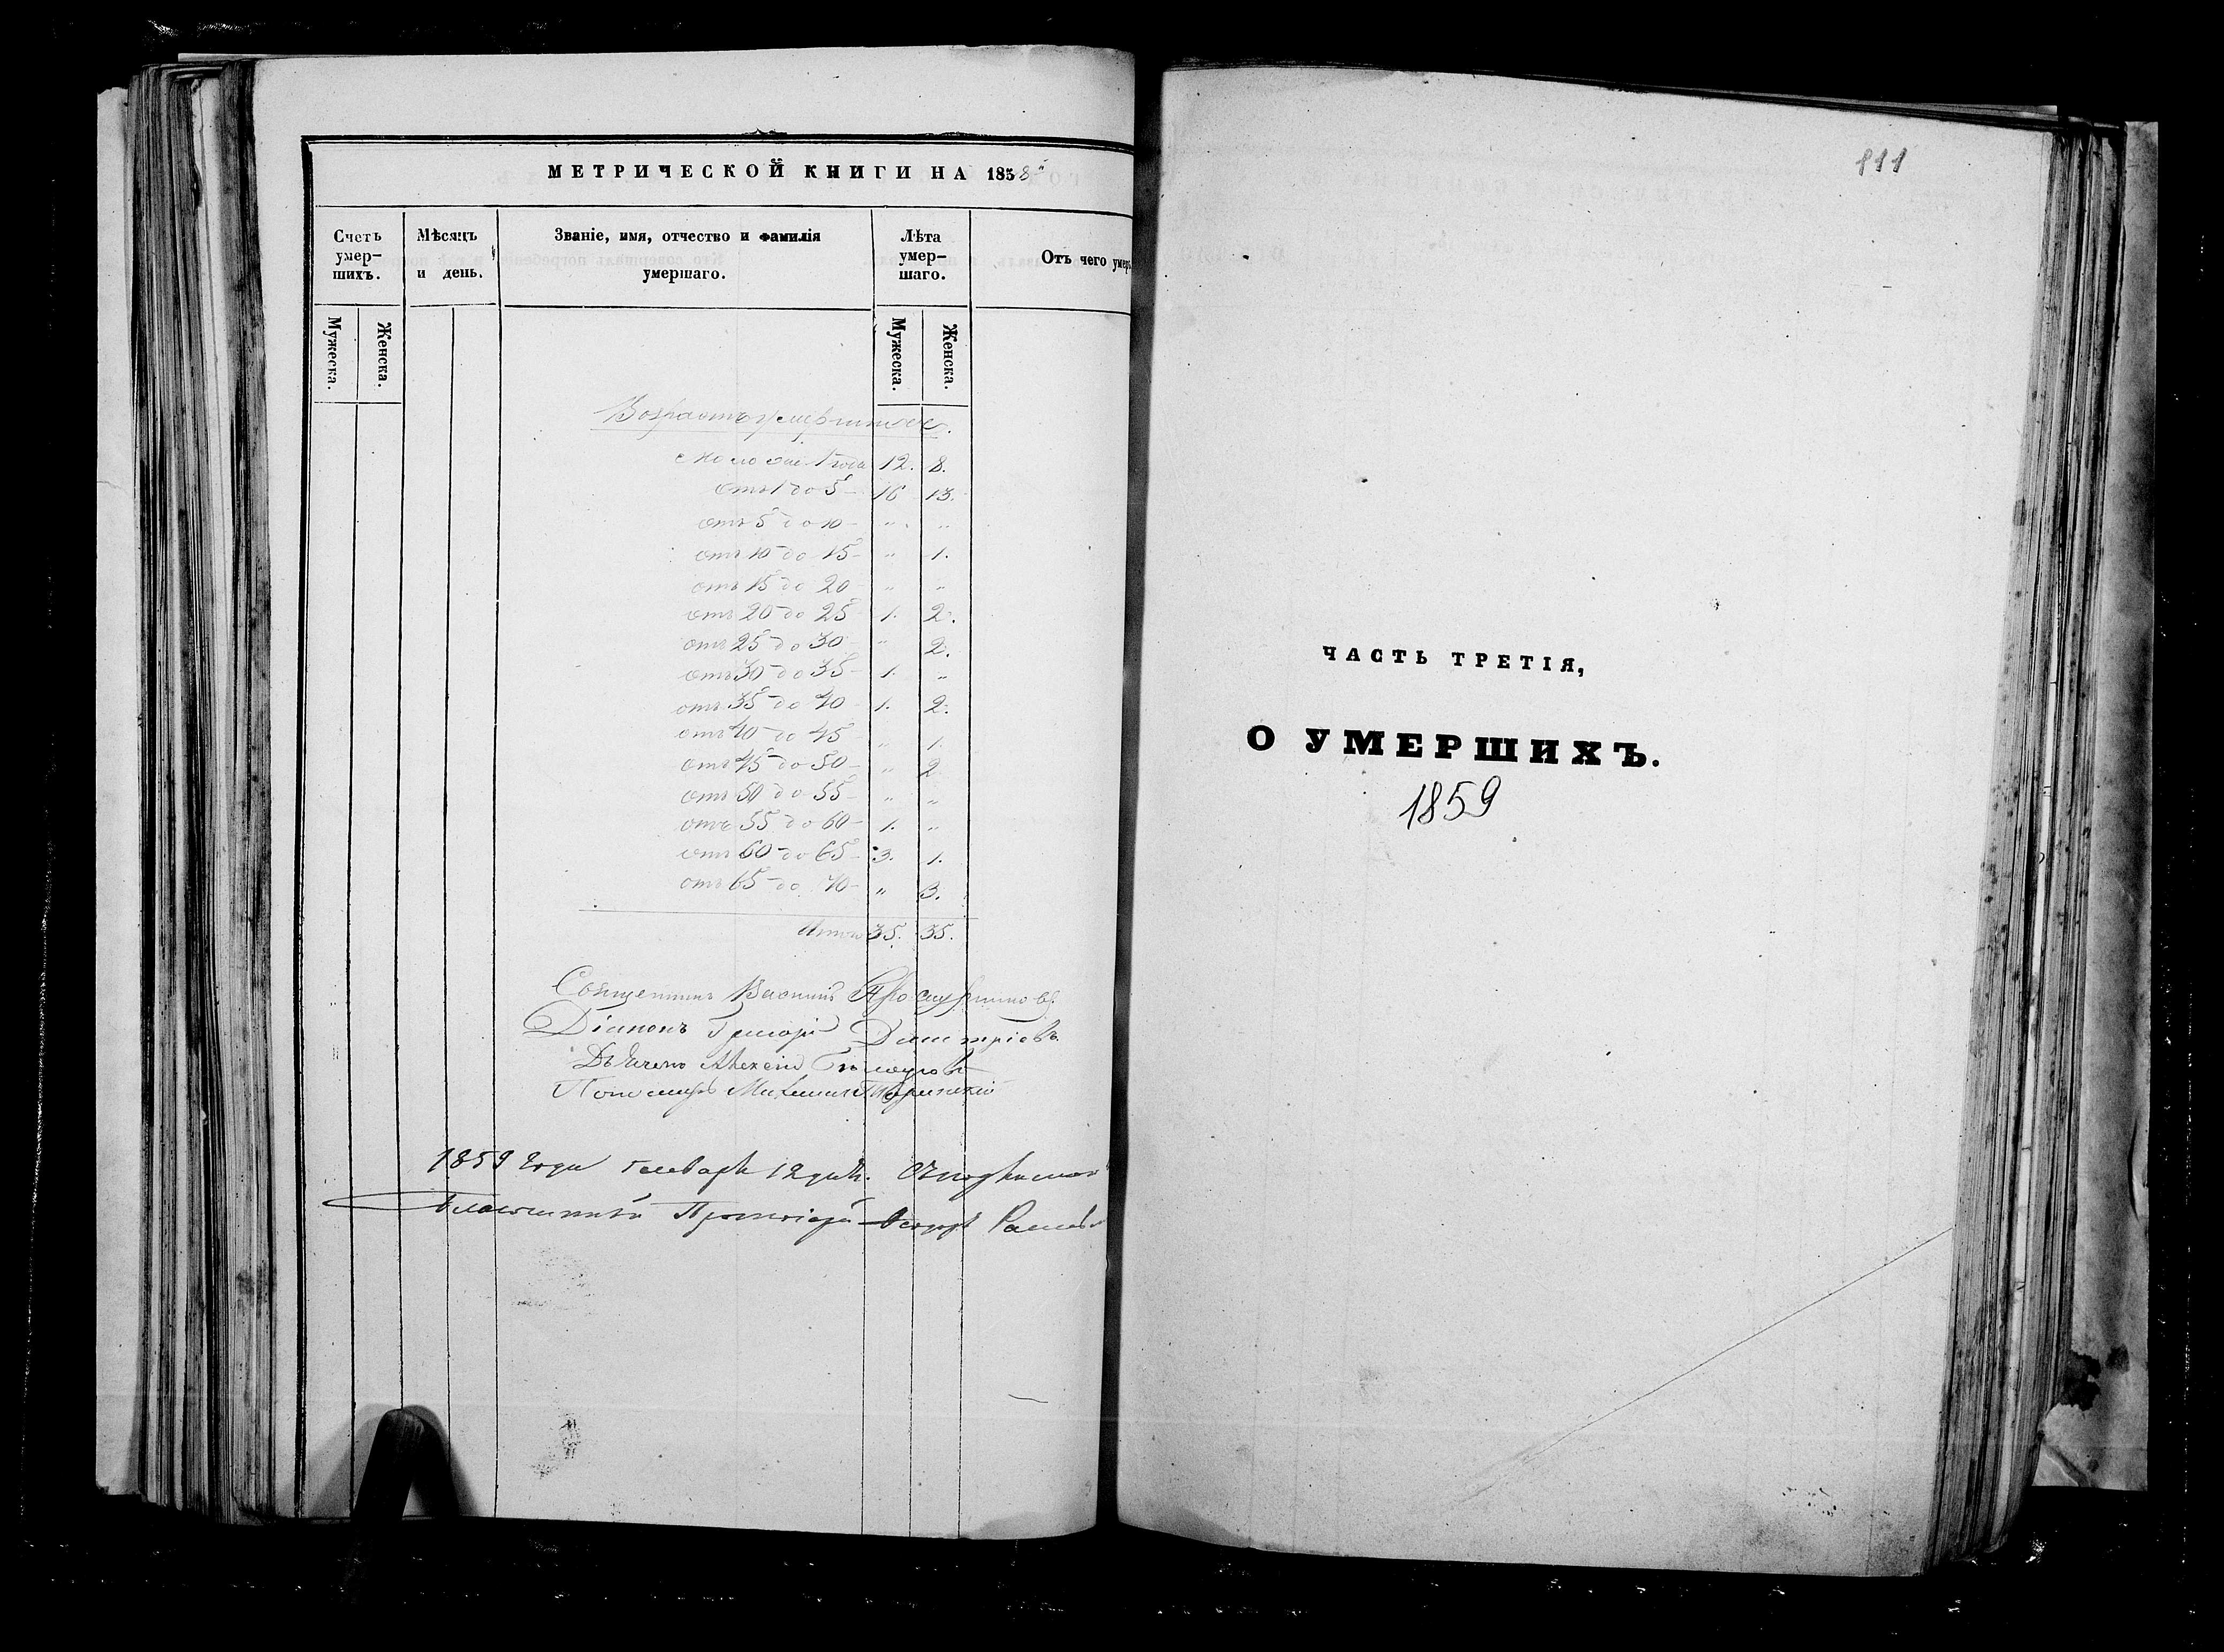 МЕТРИЧЕСКОЙ КНИГИ НА 1858
Счетъ умер-шихъ.
Мѣсяцъ и день.
Званіе, имя, отчество и фамилія умершаго.
Лѣта умер-шаго.
Отъ чего умеръ
Мужеска.
Женска.
Мужеска.
Женска.
Возрастъ умершихъ.
1 года 12. 8.
отъ 1 до 5 – 16 13.
отъ 5 до 10 – " "
отъ 10 до 15 – " 1.
отъ 15 до 20 " "
отъ 20 до 25 – 1. 2.
отъ 25 до 30 – " 2.
отъ 30 до 35 – 1. "
отъ 35 до 40 1. 2.
отъ 40 до 45 " 1.
отъ 45 до 50 – " 2
отъ 50 до 55 – " "
отъ 55 до 60 – 1. "
отъ 60 до 65 – 3. 1.
отъ 65 до 70 – " 3.
Итого 35. 35.
Священникъ Василій
Діаконъ Григорій Димитріевъ
Дьячекъ Алексій
Пономарь Михаилъ
1859 года Генваря 12 дня.
Благочинный Протоіерей
811
ЧАСТЬ ТРЕТІЯ,
О УМЕРШИХЪ.
1859